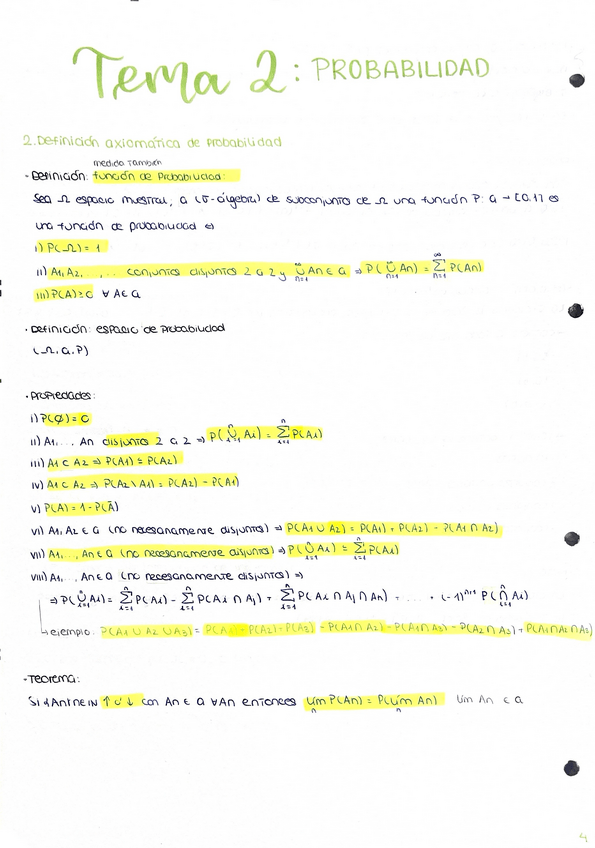 Tema 2: PROBABILIDAD
2. Definición axiomática de Probabilidad
medida también
- Definición: función de Probabilidad:
Sea Ω espacio muestral, a (σ-álgebra) de subconjunto de Ω una función P: a → [0,1] es
una función de probabilidad ⇔
i) P(Ω) = 1
ii) A1, A2, ... conjuntos disjuntos 2 a 2 y ∞∪n=1 An ∈ a ⇒ P(∞∪n=1 An) = ∞∑n=1 P(An)
iii) P(A) ≥ 0 ∀ A ∈ a
· Definición: espacio de Probabilidad
(Ω, a, P)
· Propiedades:
i) P(∅) = 0
ii) A1, ... An disjuntos 2 a 2 ⇒ P(n∪i=1 Ai) = n∑i=1 P(Ai)
iii) A1 ⊂ A2 ⇒ P(A1) ≤ P(A2)
iv) A1 ⊂ A2 ⇒ P(A2 \ A1) = P(A2) - P(A1)
v) P(A) = 1 - P(Ā)
vi) A1, A2 ∈ a (no necesariamente disjuntos) ⇒ P(A1 ∪ A2) = P(A1) + P(A2) - P(A1 ∩ A2)
vii) A1, ..., An ∈ a (no necesariamente disjuntos) ⇒ P(n∪i=1 Ai) ≤ n∑i=1 P(Ai)
viii) A1, ... An ∈ a (no necesariamente disjuntos) ⇒
⇒ P(n∪i=1 Ai) = n∑i=1 P(Ai) - n∑i=1 P(Ai ∩ Aj) + n∑i=1 P(Ai ∩ Aj ∩ An) + ... + (-1)ⁿ⁺¹ P(n∩i=1 Ai)
↳ ejemplo: P(A1 ∪ A2 ∪ A3) = P(A1) + P(A2) + P(A3) - P(A1 ∩ A2) - P(A1 ∩ A3) - P(A2 ∩ A3) + P(A1 ∩ A2 ∩ A3)
- Teorema:
Si {An}n∈ℕ ↑ o ↓ con An ∈ a ∀ An entonces lím n P(An) = P(lím n An) lím An ∈ a
4